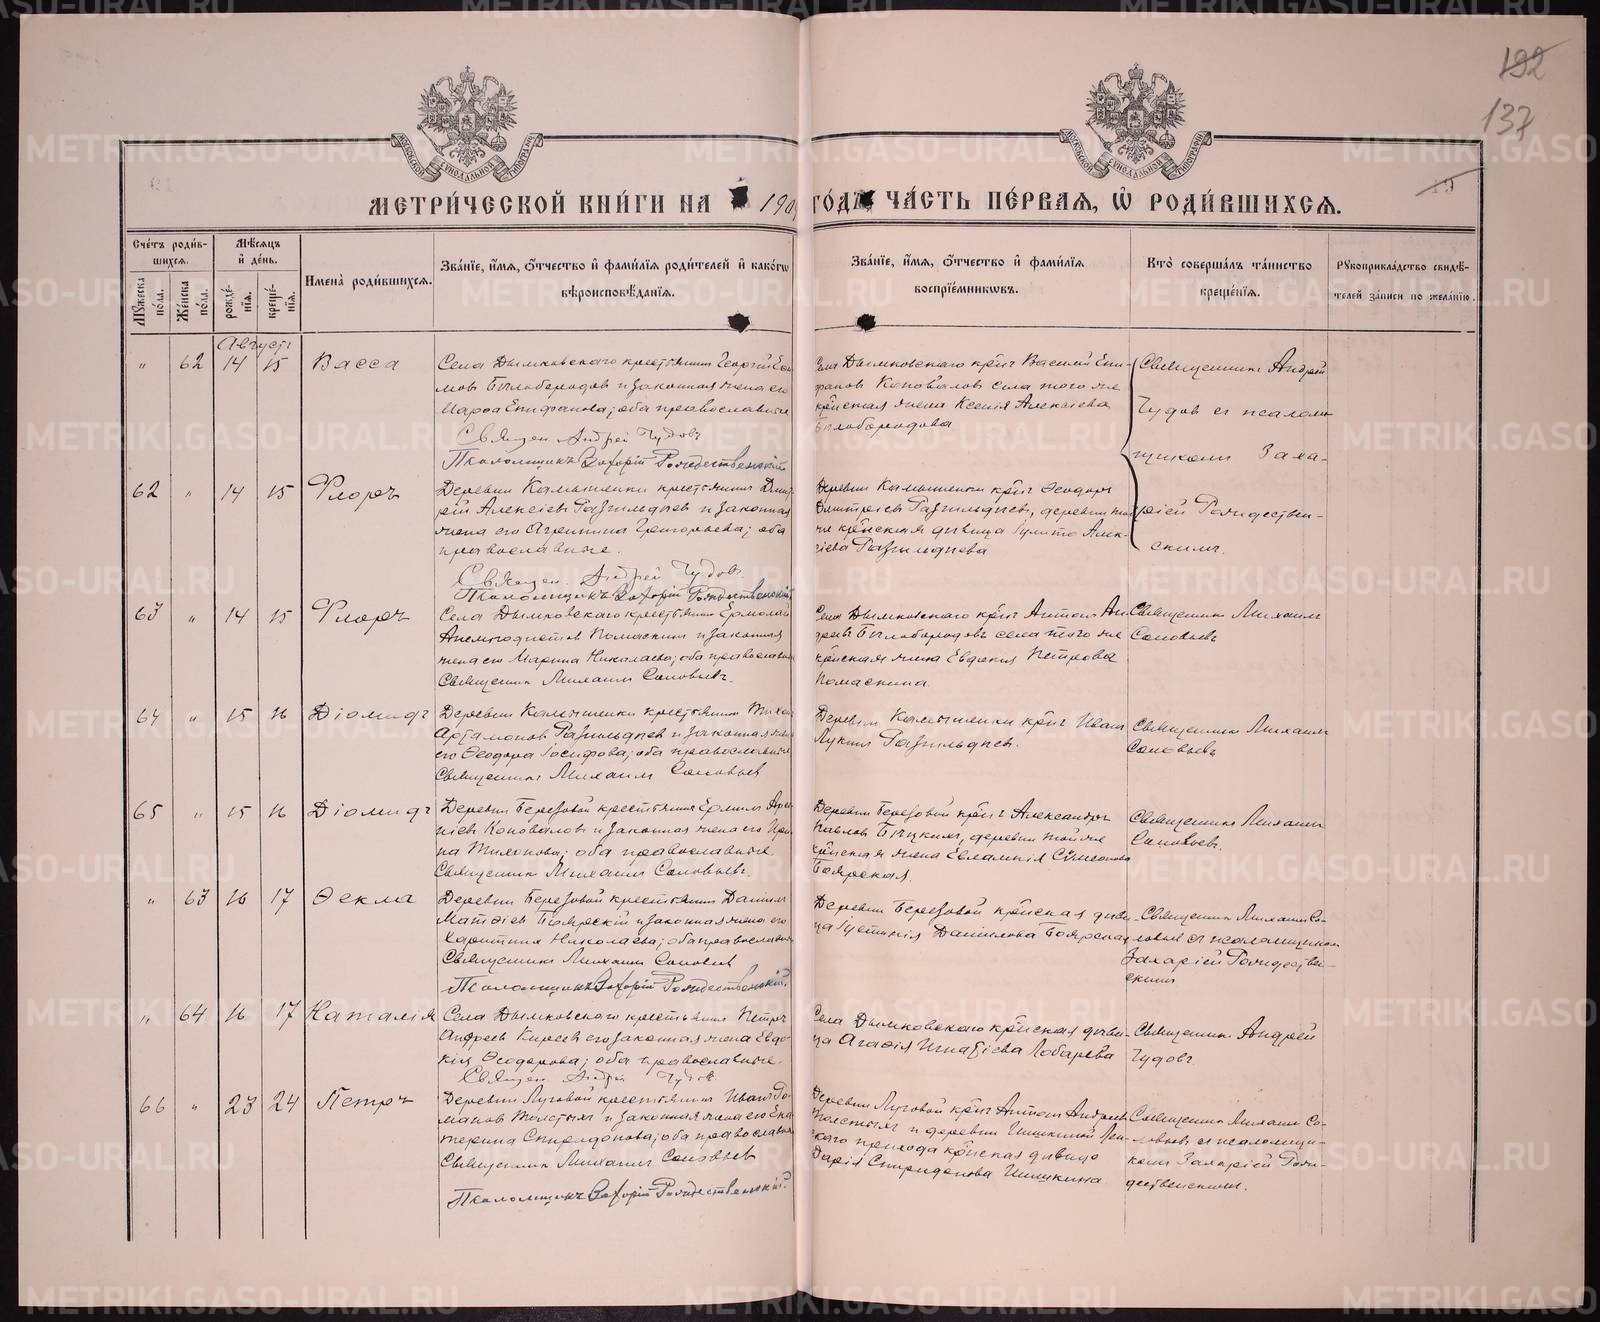 192
137
19
МОСКОВСКОЙ СѴНОДАЛЬНОЙ ТИПОГРАФІИ
МОСКОВСКОЙ СѴНОДАЛЬНОЙ ТИПОГРАФІИ
МЕТРИ́ЧЕСКОЙ КНИ́ГИ НА 190
ГО́ДЪ ЧА́СТЬ ПЕ́РВАЯ, Ѽ РОДИ́ВШИХСЯ.
Сче́тъ роди́в-
шихся.
Мѣ́сяцъ
и҆ де́нь.
Имена̀ роди́вшихся.
Зва́нїе, и҆́мя, ѻ҆́тчество и҆ фами́лїя роди́телей и҆ како́гѡ
вѣроисповѣ́данїя.
Зва́нїе, и҆́мя, ѻ҆́тчество и҆ фами́лїя
воспрїе́мникѡвъ.
Кто̀ соверша́лъ та́инство
креще́нїя.
Рꙋкоприкла́дство свидѣ́-
телей за́писи по жела́нїю.
Мꙋ́жеска
по́ла.
Же́нска
по́ла.
рожде́-
нїя.
креще́-
нїя.
Августъ
" 62 14 15 Васса
Села Дымковскаго крестьянинъ Георгій Ефи-
мовъ Бѣлобородовъ и законная жена его
Епифанова; оба православные
Священ. Андрей Чудовъ
Псаломщикъ Захарій Рождественскій
Села Дымковскаго кр-нъ Василій Епи-
фановъ Коноваловъ села того же
кр-нская жена Ксенія Алексѣева
Бѣлобородова
Священникъ Андрей
Чудовъ съ псалом-
щикомъ Заха-
ріемъ Рождествен-
скимъ.
62 " 14 15 Флоръ
Деревни Камышенки крестьянинъ Дмит-
рій Алексѣевъ и законная
жена его Агрипина Григорьева; оба
православные.
Священ. Андрей Чудовъ
Псаломщикъ Захарій Рождественскій
Деревни Камышенки кр-нъ Ѳеодоръ
Дмитріевъ деревни той
же кр-нская дѣвица Алек-
сѣева
63 " 14 15 Флоръ
Села Дымковскаго крестьянинъ Ермолай
Анемподистовъ Помаскинъ и законная
жена его Марина Николаева; оба православные
Священникъ Михаилъ Соловьевъ.
Села Дымковскаго кр-нъ Антонъ Ан-
дреевъ Бѣлобородовъ села того же
кр-нская жена Евдокія Петрова
Помаскина.
Священникъ Михаилъ
Соловьевъ
64 " 15 16 Діомидъ
Деревни Камышенки крестьянинъ Тихонъ
Артамоновъ и законная жена
его Ѳеодора Іосифова; оба православные
Священникъ Михаилъ Соловьевъ
Деревни Камышенки кр-нъ Иванъ
Лукинъ
Священникъ Михаилъ
Соловьевъ
65 " 15 16 Діомидъ
Деревни Березовой крестьянинъ Ермилъ Арсе-
ніевъ Коноваловъ и законная жена его Ири-
на Тихонова; оба православные.
Священникъ Михаилъ Соловьевъ.
Деревни Березовой кр-нъ Александръ
Павловъ деревни той же
кр-нская жена Евлампія Сѵмеонова
Боярская.
Священникъ Михаилъ
Соловьевъ.
" 63 16 17 Ѳекла
Деревни Березовой крестьянинъ Даніилъ
Матѳіевъ Боярскій и законная жена его
Харитина Николаева; оба православные
Священникъ Михаилъ Соловьевъ
Псаломщикъ Захарій Рождественскій.
Деревни Березовой кр-нская дѣви-
ца Іустинія Даніилова Боярская
Священникъ Михаилъ Со-
ловьевъ съ псаломщикомъ
Захаріемъ Рождествен-
скимъ
" 64 16 17 Наталія
Села Дымковскаго крестьянинъ Петръ
Андреевъ Киреевъ его законная жена Евдо-
кія Ѳеодорова; оба православные.
Священ. Андрей Чудовъ.
Села Дымковскаго кр-нская дѣви-
ца Агаѳія Игнатіева Лобарева
Священникъ Андрей
Чудовъ
66 " 23 24 Петръ
Деревни Луговой крестьянинъ Иванъ Ро-
мановъ Толстыхъ и законная жена его Ека-
терина Спиридонова; оба православные
Священникъ Михаилъ Соловьевъ
Псаломщикъ Захарій Рождественскій
Деревни Луговой кр-нъ Антонъ Андреевъ
Толстыхъ и деревни Шишкиной
скаго прихода кр-нская дѣвица
Дарія Спиридонова Шишкина
Священникъ Михаилъ Со-
ловьевъ съ псаломщи-
комъ Захаріемъ Рож-
дественскимъ.
METRIKI.GASO-URAL.RU